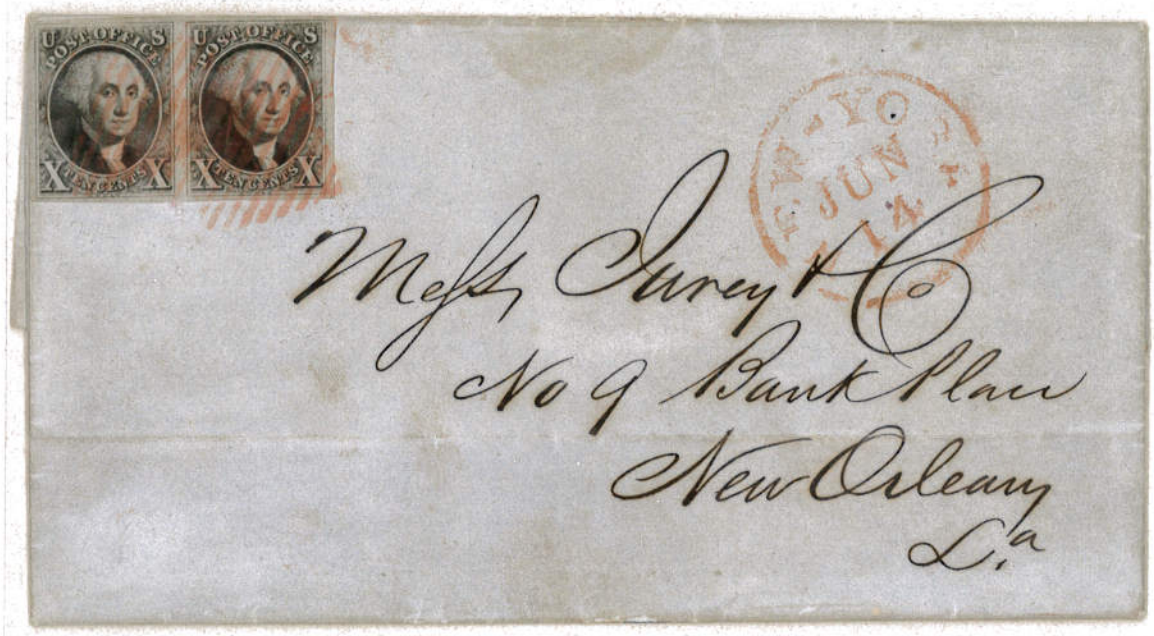 U S
POST OFFICE
X TEN CENTS X
U S
POST OFFICE
X TEN CENTS X
EW-YORK
JUN
14
Messrs Jurey & Co
No 9 Bank Place
New Orleans
La